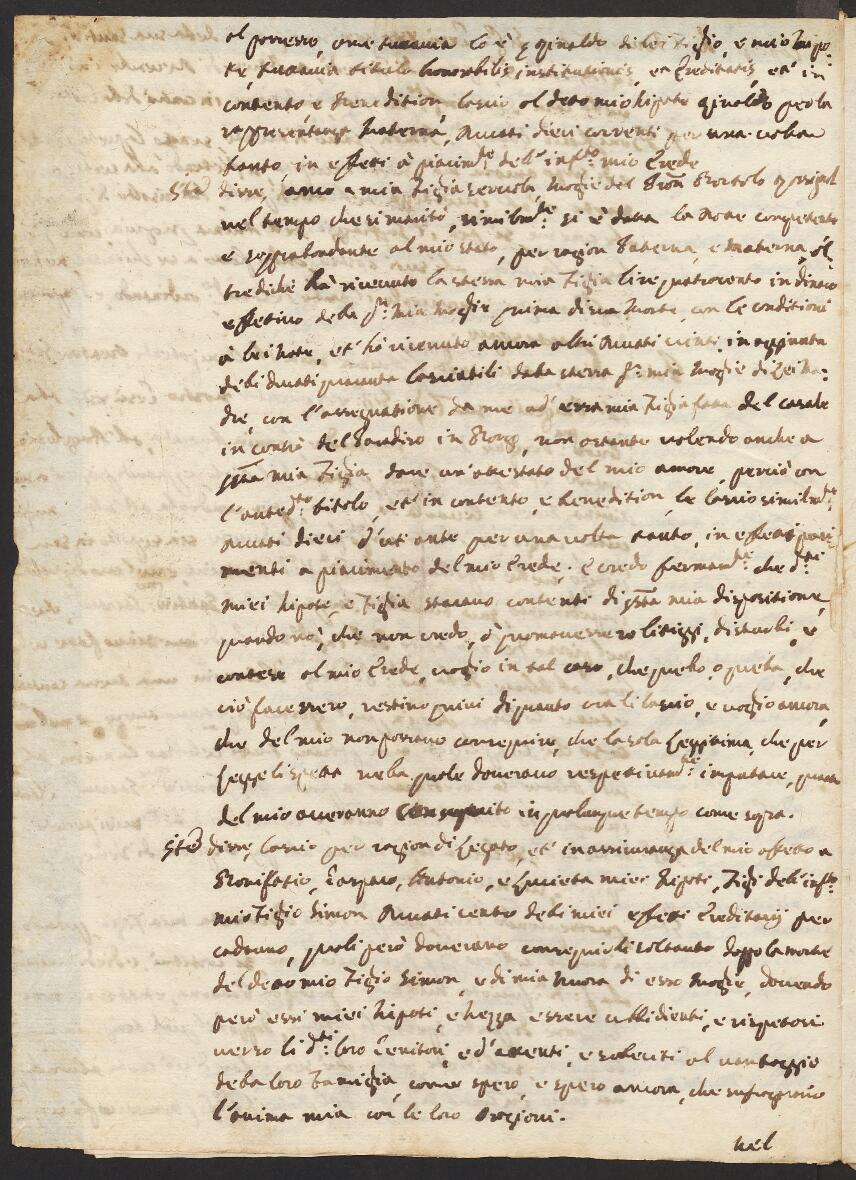 al possesso, come tuttavia lo è Reginaldo di lei Figlio, e mio Nepo-
te, tuttavia titulo honorabilis institutionis, et hereditatis, et in
contento e Benedition lascio al detto mio Nipote Reginaldo per la
rappresentanza Materna, Ducati dieci correnti per una volta
tanto, in effetti à piacim.te dell' inf.to mio Erede
Ite disse, lascio a mia Figlia moglie del Bortolo
nel tempo che si maritò, similm.te si è data la Dote competente
e soprabondante al mio stato, per ragion Paterna, e Materna, ol
trediche hà ricevuto la stessa mia Figlia lire quatrocento in dinaro
effetivo della q. mia Moglie prima di sua Morte, con le conditioni
à lei note, et hà ricevuto ancora altri Ducati vinti, in aggionta
delli Ducati quaranta lasciatili dalla sterra q. mia Moglie di lei Ma-
dre, con l'assegnatione da me ad' essa mia Figlia fata del casale
in contrà del in Borgo, non ostante volendo anche a
questa mia Figlia dare un'attestato del mio amore, perciò con
l'anted.to titolo, et' in contento, e benedition, le lascio similm.te
Ducati dieci d'ut ante per una volta tanto, in effetti pari-
menti a piacimento del mio Erede. E credo fermam.te che d.ti
miei Nipote, e Figlia staranno contenti di questa mia disposition,
quando nò, che non credo, ò promovessero litiggi, disturbi, e
contese al mio Erede, voglio in tal caso, che quello, o quella, che
ciò facessero, restino privi di quanto ora li lascio, e voglio ancora,
che del mio non possano conseguire, che la sola leggitima, che per
legge li spetta nella quale doverano respetivam.te imputare, quanto
del mio averanno conseguito in qualunque tempo come sopra.
Ite disse, lascio per ragion di Legato, et in assicuranza del mio affetto a
Bonifatio, Gasparo, Antonio, e Lucieta miei Nipoti, Figli dell'inf.to
mio Figlio Simon Ducati cento delli miei effetti Ereditarij per
cadauno, quali però doverano conseguirli soltanto doppo la morte
del detto mio Figlio Simon, e di mia Nuora di esso Moglie, dovendo
però essi miei Nipoti, e Nezza essere ubbidienti, e rispetosi
verso li d.ti loro Genitori, e d'attenti, e soleciti al vantaggio
della loro Famiglia, come spero, e spero ancora, che suffragarano
l'anima mia con le loro Orazioni.
Nel